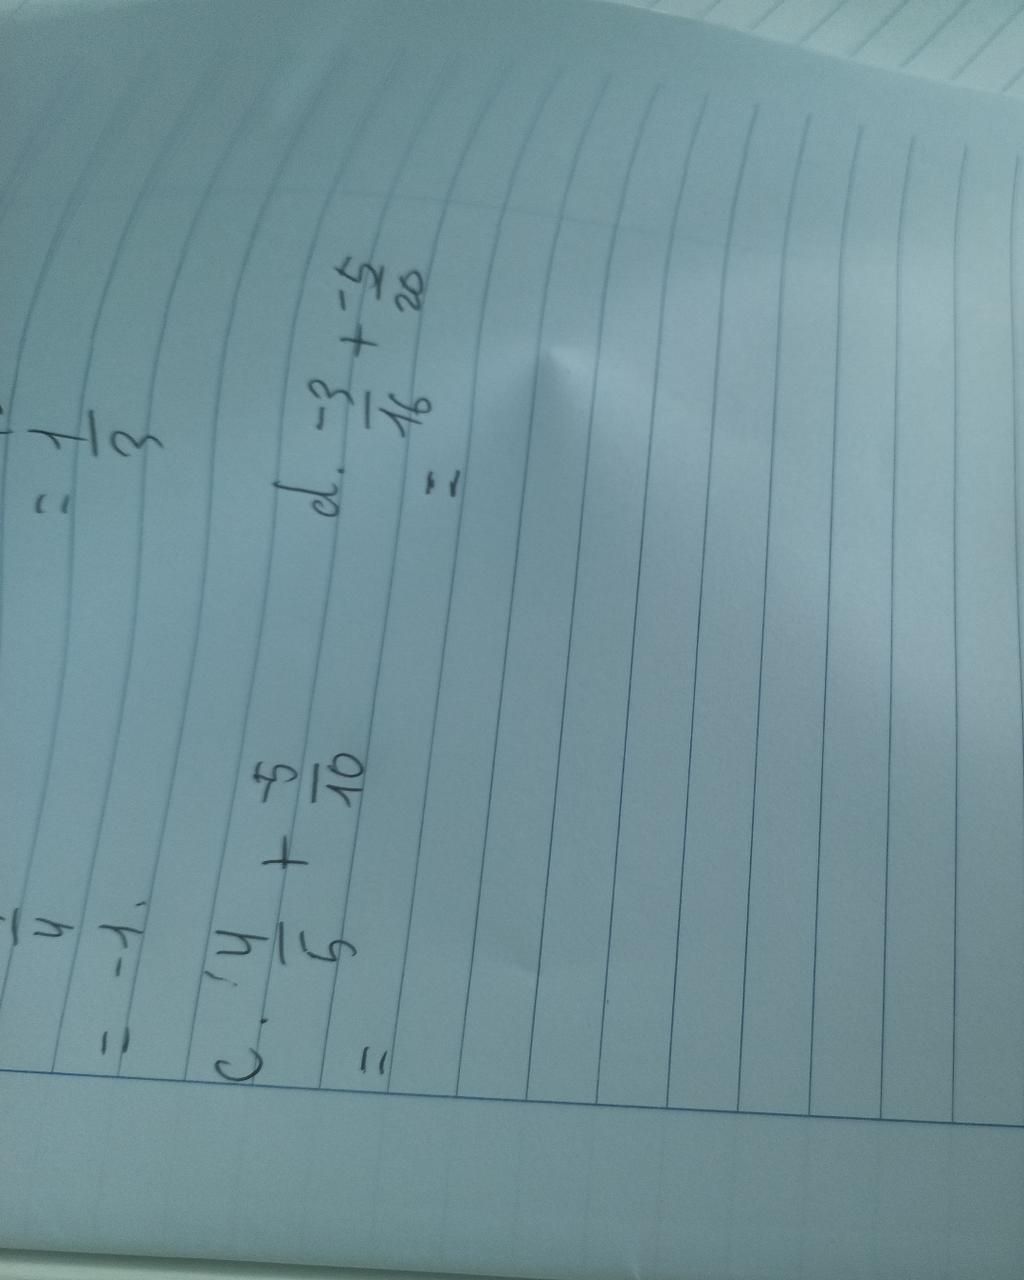 4
= -1.
= 1/3
c. 4/5 + -5/10
=
d. -3/16 + -5/20
=